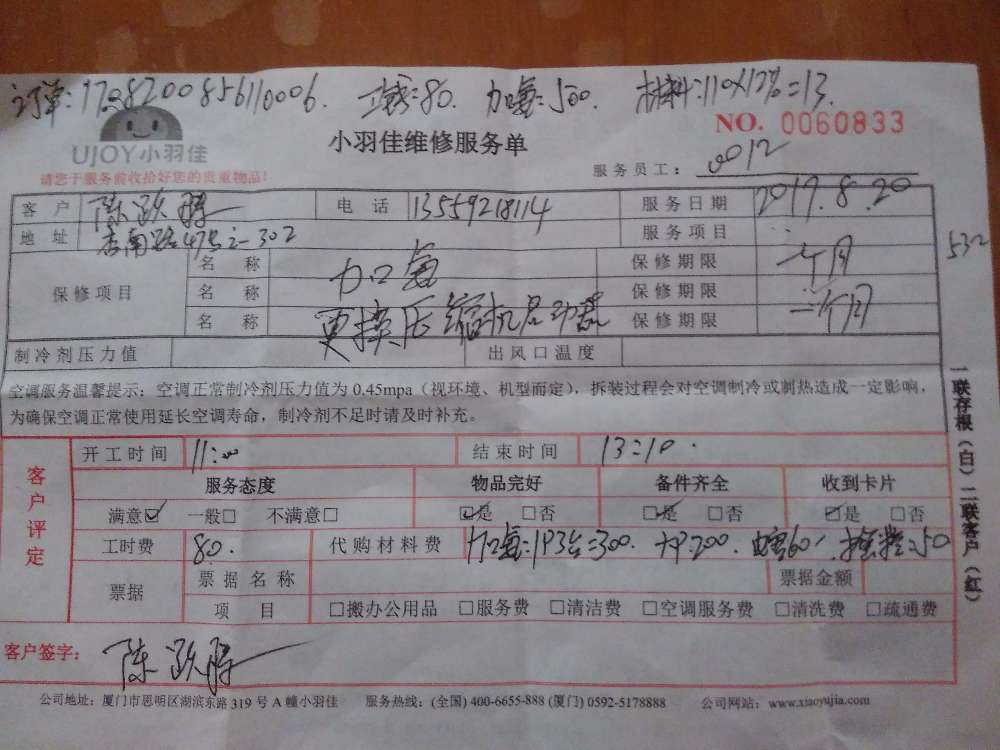 订单:1708200856110006. 工时:80. 加氟:500. 材料:110×12%=13.
UJOY小羽佳
小羽佳维修服务单
NO. 0060833
请您于服务前收拾好您的贵重物品!
服务员工: 0012
客户 陈跃腾 电话 13559218114 服务日期 2017.8.20
地址 杏南路47号之一302 服务项目
532
保修项目 名称 加氟 保修期限 一个月
名称 保修期限
名称 更换压缩机启动器 保修期限 一个月
制冷剂压力值 出风口温度
空调服务温馨提示:空调正常制冷剂压力值为 0.45mpa(视环境、机型而定),拆装过程会对空调制冷或制热造成一定影响,
为确保空调正常使用延长空调寿命,制冷剂不足时请及时补充。
一联存根(白)二联客户(红)
客户评定
开工时间 11:00 结束时间 13:10.
服务态度 物品完好 备件齐全 收到卡片
满意☑ 一般□ 不满意□ ☑是 □否 ☑是 □否 ☑是 □否
工时费 80. 代购材料费 加氟:1P3台=300. 大P:200. 60 50
票据 票据名称 票据金额
项目 □搬办公用品 □服务费 □清洁费 □空调服务费 □清洗费 □疏通费
客户签字: 陈跃腾
公司地址:厦门市思明区湖滨东路 319 号 A 幢小羽佳 服务热线:(全国) 400-6655-888 (厦门) 0592-5178888 公司网站:www.xiaoyujia.com